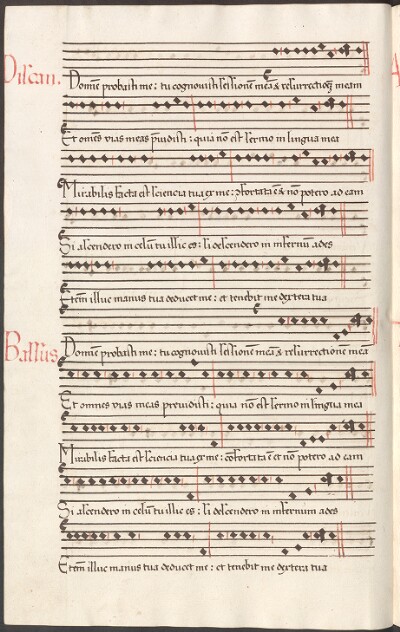 Discan.
Domiē probasti me: tu cognovisti sessionē meā & resurrectionē meam
Et omēs vias meas p̄vidisti: quia nō est sermo in lingua mea
Mirabilis facta est sciencia tua ex me: ꝯfortata ē & nō potero ad eam
Si ascendero in celū tu illic es: si descendero in infernum ades
Etem illuc manus tua deducet me: et tenebit me dextera tua
Bassus
Domiē probasti me: tu cognovisti sessionē meā & resurrectionē meā
Et omnes vias meas previdisti: quia nō est sermo in lingua mea
Mirabilis facta est sciencia tua ex me: cōfortata ē et nō potero ad eam
Si ascendero in celū tu illic es: si descendero in infernum ades
Etem illuc manus tua deducet me: et tenebit me dextera tua